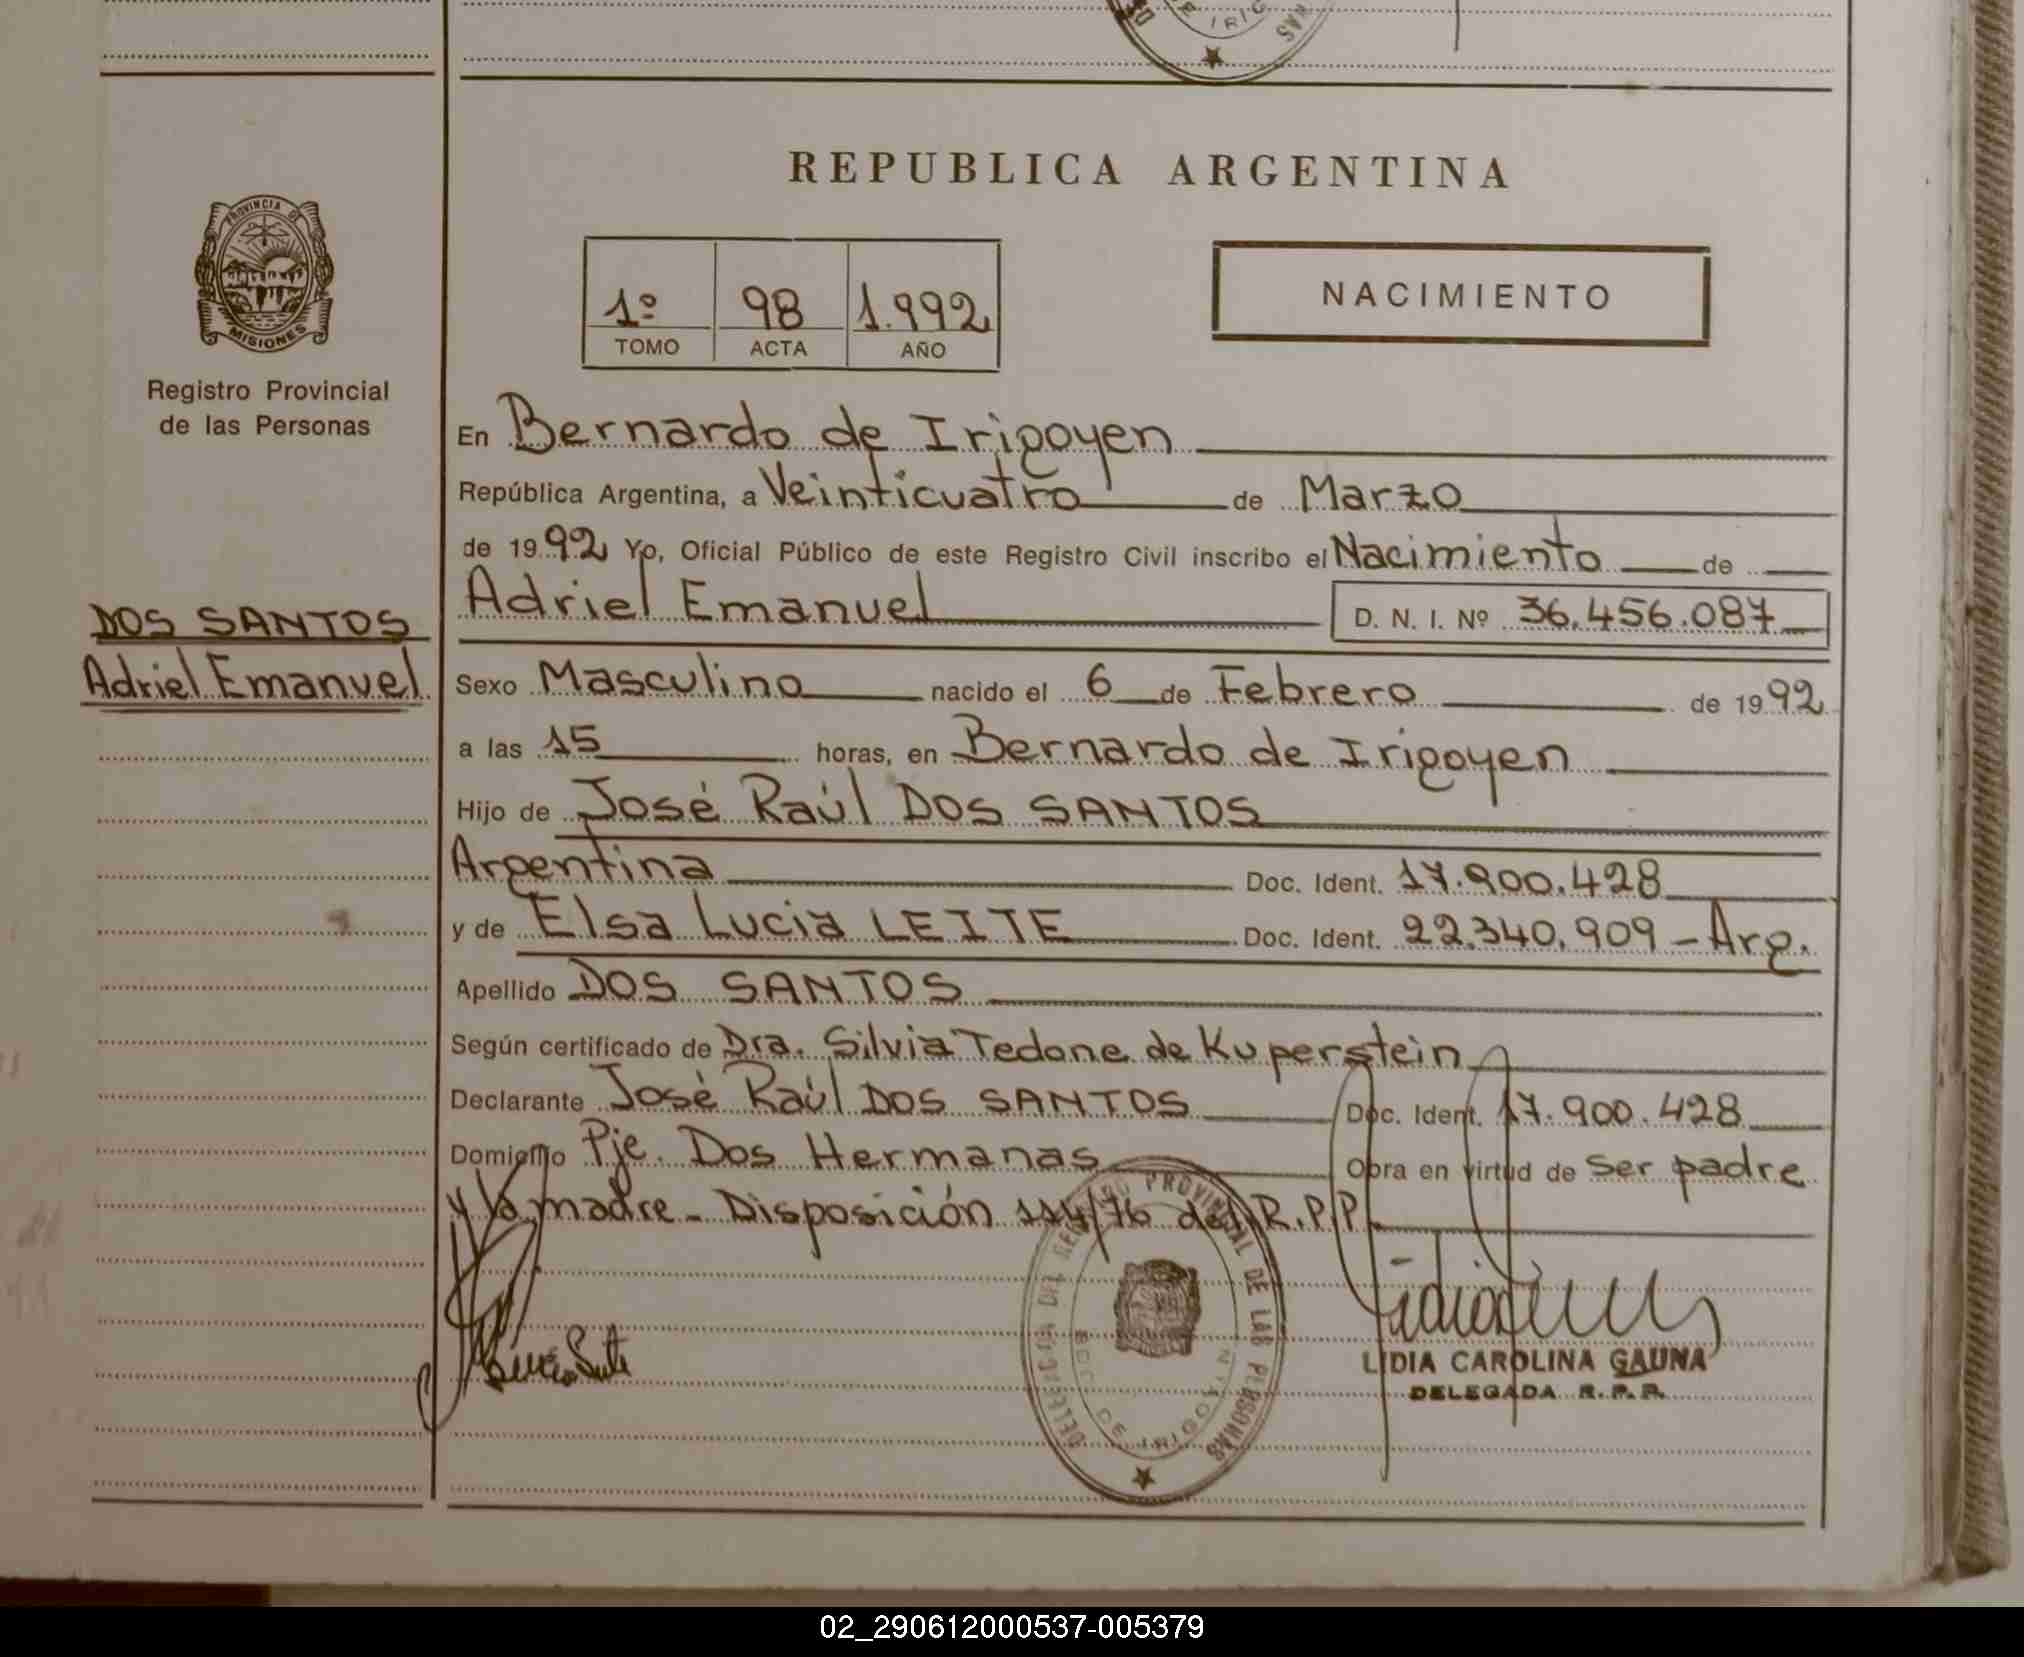 REPUBLICA ARGENTINA
PROVINCIA DE
MISIONES
Registro Provincial
de las Personas
1º 98 1.992
TOMO ACTA AÑO
NACIMIENTO
En Bernardo de Irigoyen
República Argentina, a Veinticuatro de Marzo
de 1992 Yo, Oficial Público de este Registro Civil inscribo el Nacimiento de
Adriel Emanuel D. N. I. Nº 36.456.087
DOS SANTOS
Adriel Emanuel
Sexo Masculino nacido el 6 de Febrero de 1992
a las 15 horas, en Bernardo de Irigoyen
Hijo de José Raúl DOS SANTOS
Argentina Doc. Ident. 17.900.428
y de Elsa Lucia LEITE Doc. Ident. 22.340.909 - Arg.
Apellido DOS SANTOS
Según certificado de Dra. Silvia Tedone de Kuperstein
Declarante José Raúl DOS SANTOS Doc. Ident. 17.900.428
Domicilio Pje. Dos Hermanas Obra en virtud de ser padre
y la madre - Disposición 114/76 del R.P.P.
DELEGACION DEL REGISTRO PROVINCIAL DE LAS PERSONAS
LIDIA CAROLINA GAUNA
DELEGADA R. P. P.
02_290612000537-005379